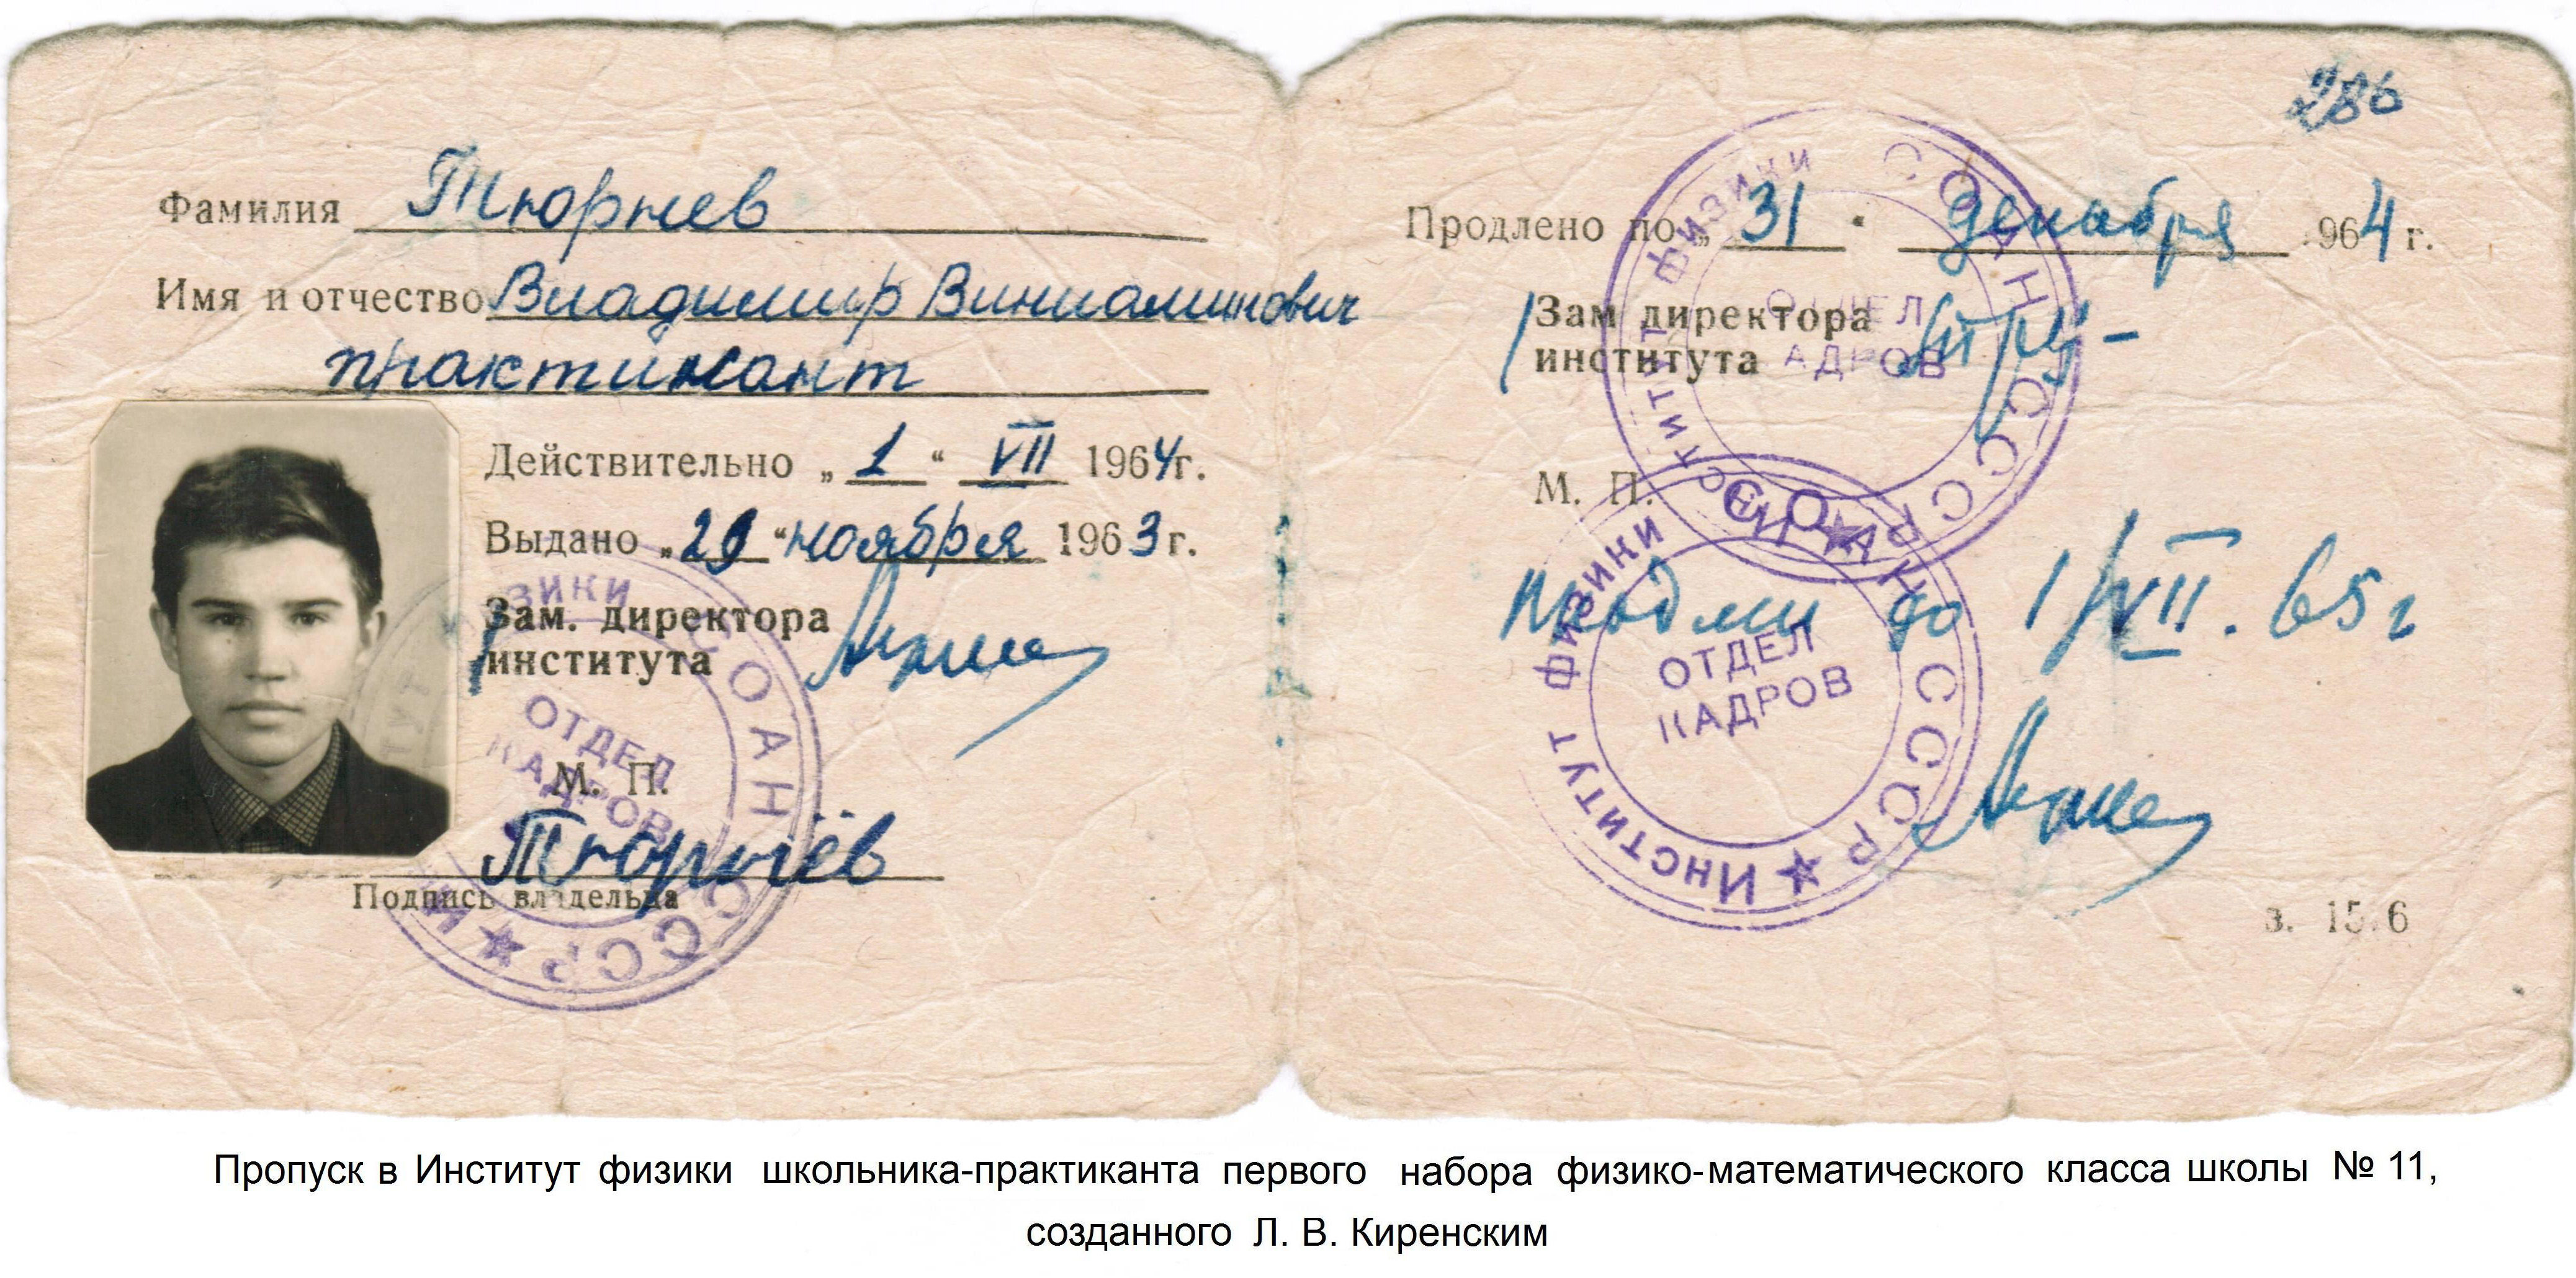 286
Фамилия Тюрнев
Имя и отчество Владимир Виниаминович
практикант
Действительно „1“ VII 1964г.
Выдано „29“ ноября 1963г.
Зам. директора
института
М. П.
Тюрнёв
Подпись владельца
ОТДЕЛ
КАДРОВ
ФИЗИКИ СОАН СССР ★ И
Продлено по „31“ декабря 1964г.
Зам директора
института
М. П.
ОТДЕЛ
КАДРОВ
ИНСТИТУТ ФИЗИКИ СОАН СССР ★
до 1/VII. 65г
ОТДЕЛ
КАДРОВ
ИНСТИТУТ ФИЗИКИ СОАН СССР ★
з. 15 6
Пропуск в Институт физики школьника-практиканта первого набора физико-математического класса школы № 11,
созданного Л. В. Киренским